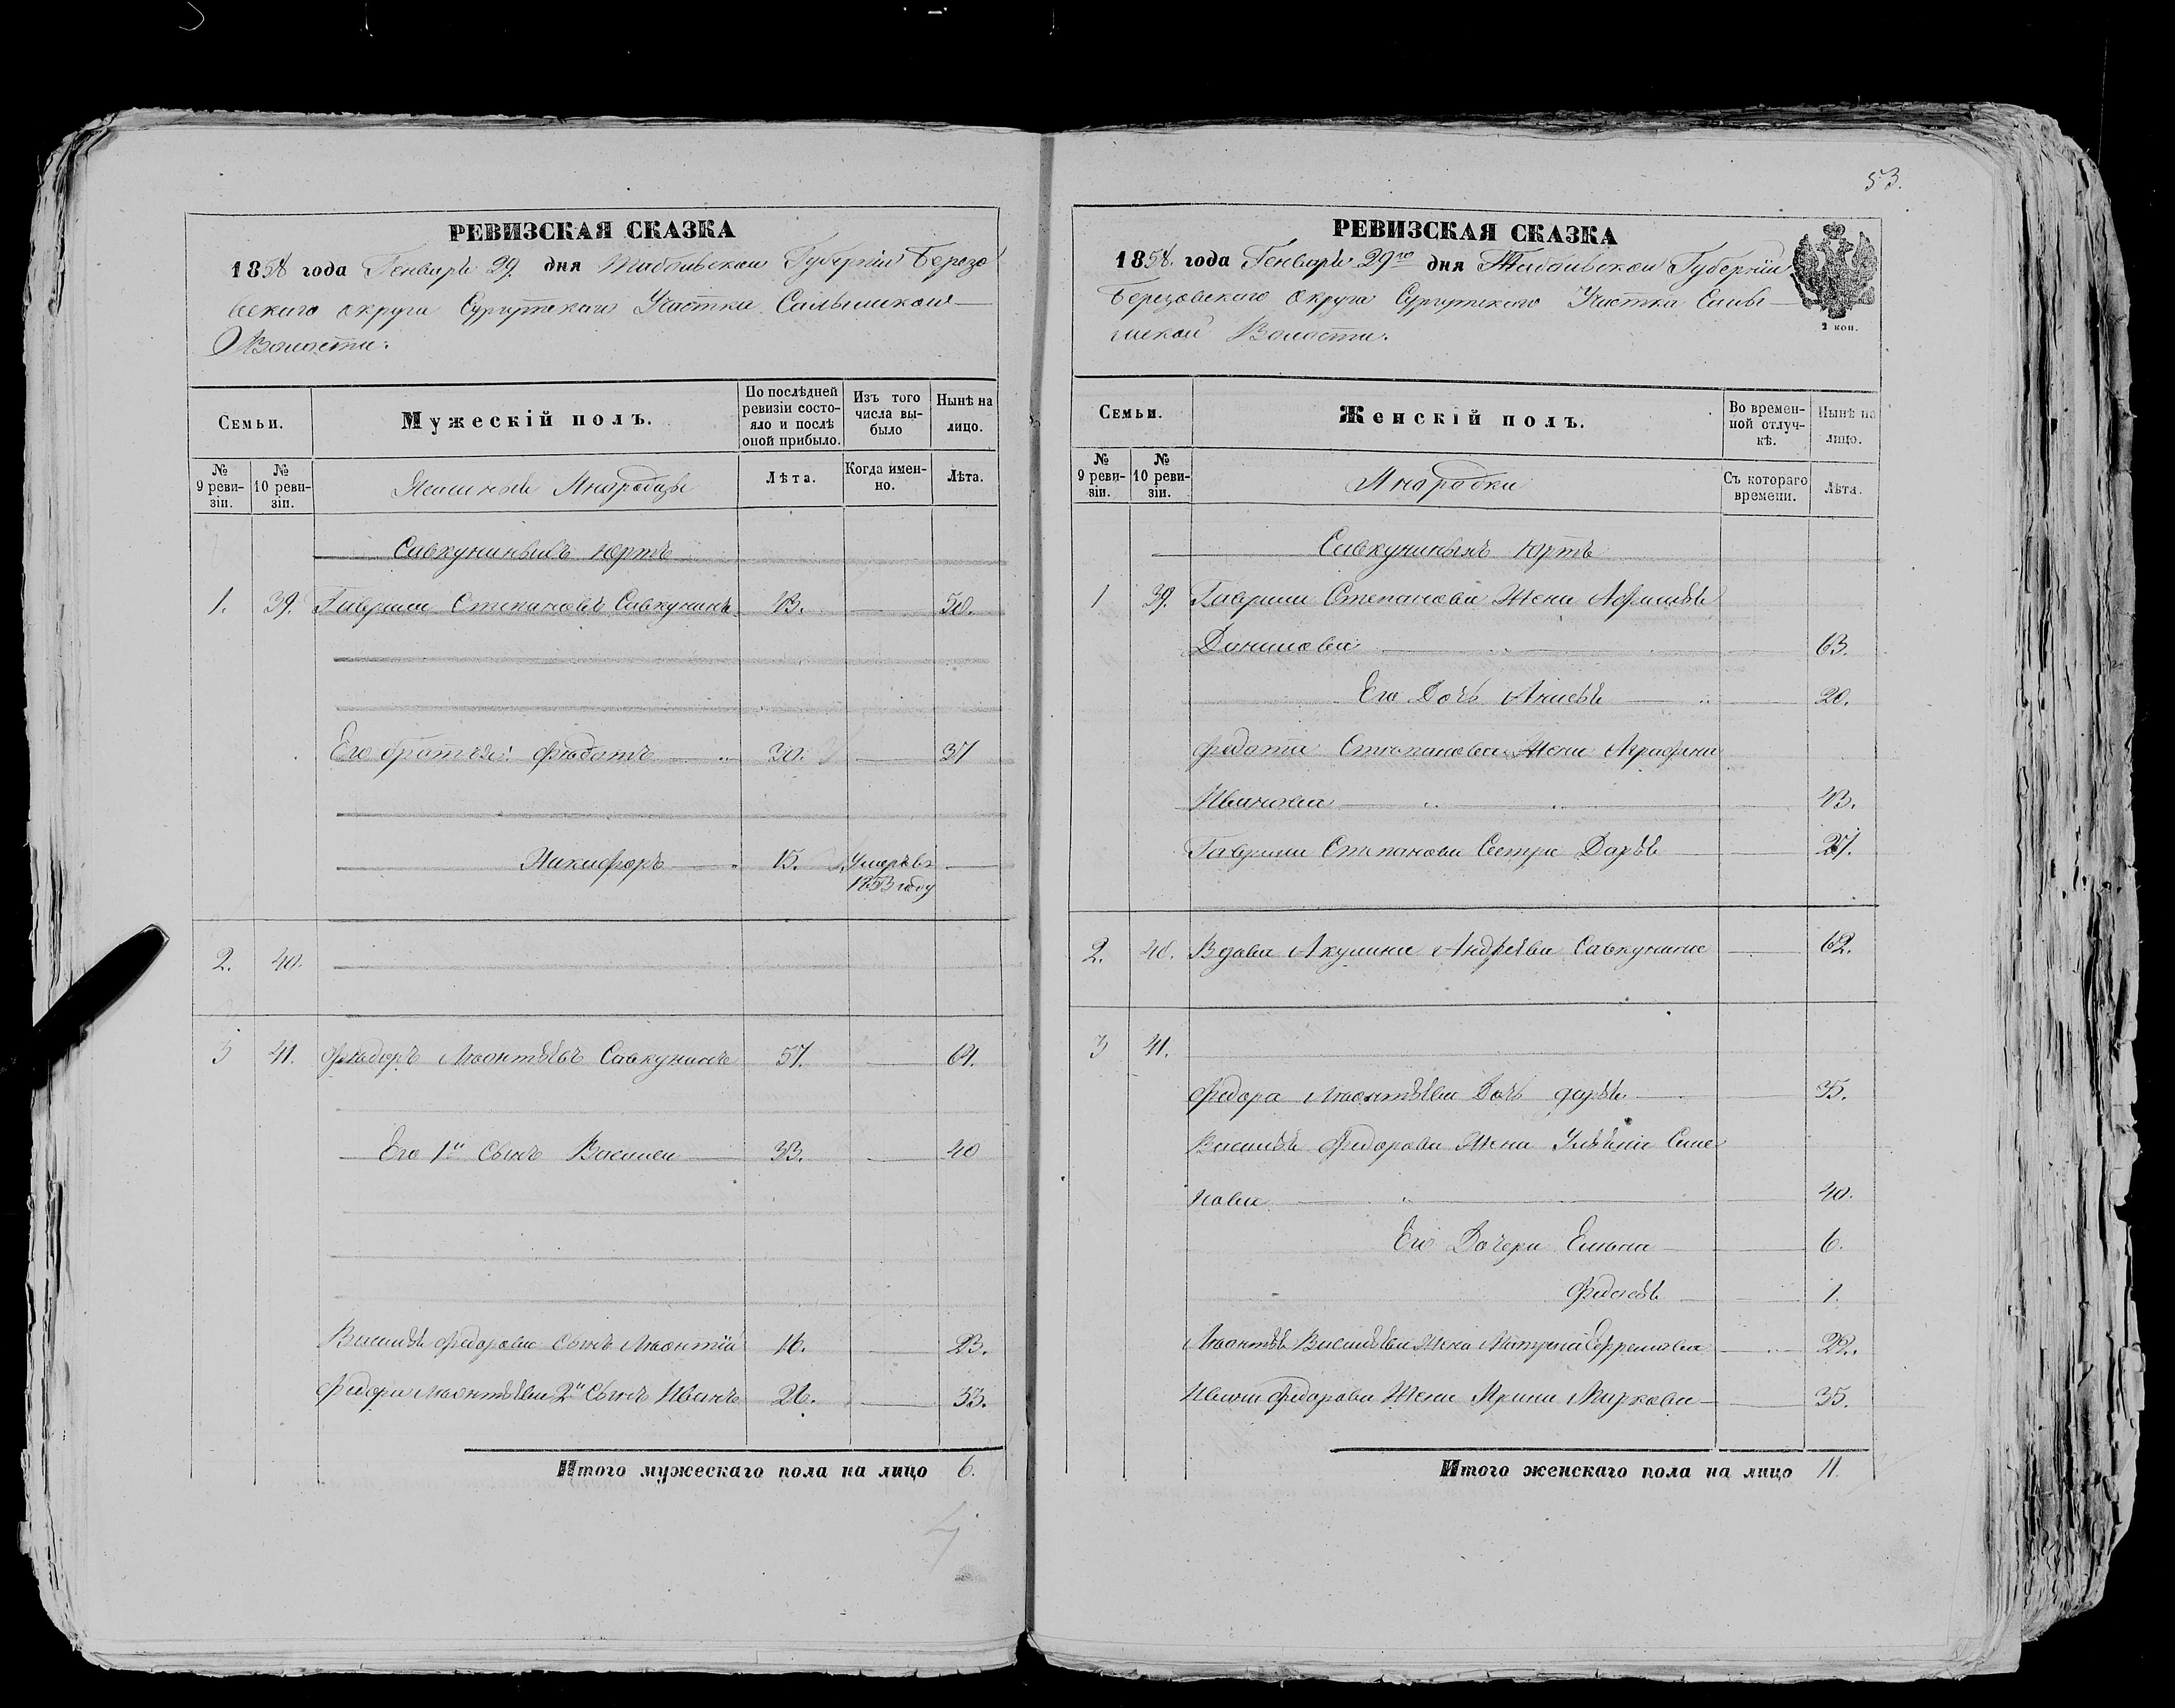 53.
РЕВИЗСКАЯ СКАЗКА
1858 года Генваря 29 дня Тобольской Губерніи Березо
вскаго округа Сургутскаго Участка Салымской
Волости.
Семьи.
Мужескій полъ.
По послѣдней ревизіи состояло и послѣ оной прибыло.
Изъ того числа выбыло
Нынѣ на лицо.
№ 9 ревизіи.
№ 10 ревизіи.
Ясашные Инородцы
Лѣта.
Когда именно.
Лѣта.
Савкуниныхъ юртъ
1. 39. Гаврило Степановъ Савкунинъ 43. 50.
Его братья: Федотъ 30. 37
Никифоръ 15. Умеръ въ
1853 году
2. 40.
3 41. Федоръ Леонтьевъ Савкунинъ 57. 64.
Его 1й Сынъ Василей 33. 40
Василья Федорова Сынъ Леонтій 16. 23.
Федора Леонтьева 2й Сынъ Иванъ 26. 33.
Итого мужескаго пола на лицо 6.
РЕВИЗСКАЯ СКАЗКА
1858 года Генваря 29го дня Тобольской Губерніи
Березовскаго Округа Сургутскаго Участка Салы
мской Волости.
2 коп.
Семьи.
Женскій полъ.
Во временной отлучкѣ.
Нынѣ на лицо.
№ 9 ревизіи.
№ 10 ревизіи.
Инородки
Съ котораго времени.
Лѣта.
Савкуниныхъ юртъ
1 39. Гаврила Степанова Жена
Данилова 63.
Его Дочь Анисья 20.
Федота Степанова Жена Аграфена
Иванова 43.
Гаврила Степанова Сестра Дарья 27.
2. 40. Вдова Акулина Андреева Савкунина 62.
3 41.
Федора Леонтьева Дочь Дарья 35.
Василья Федорова Жена Ульяна Семе
нова 40.
Его Дочери Елена 6.
Федосья 1.
Леонтья Васильева Жена Матрена Ефремова 22.
Ивана Федорова Жена Ирина Маркова 35.
Итого женскаго пола на лицо 11.